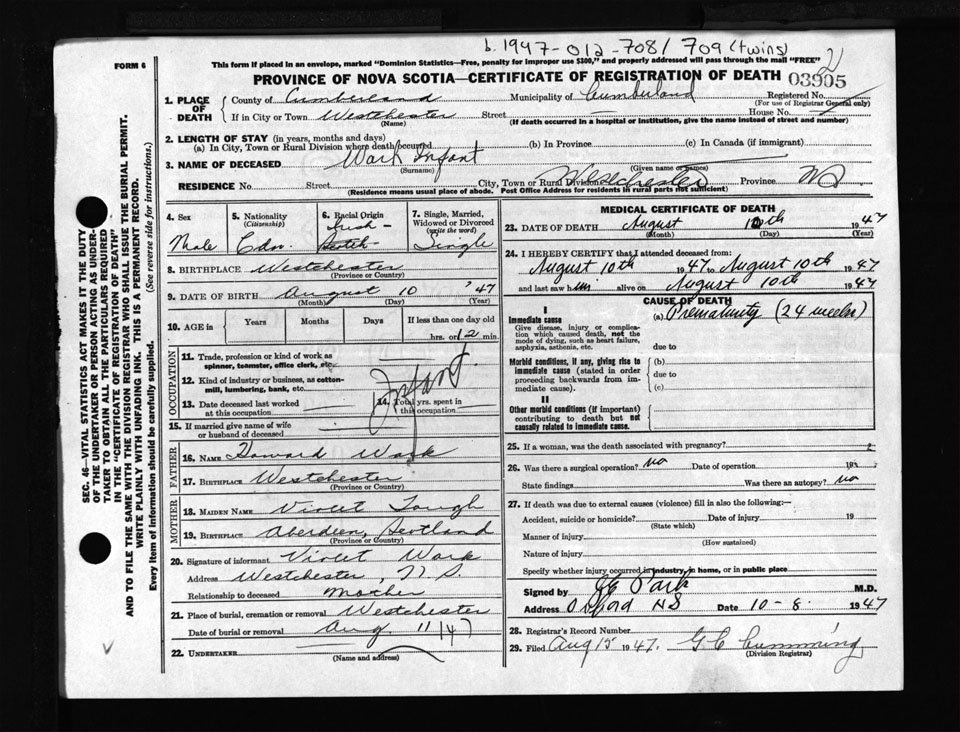 b. 1947-012-708/709 (twins)
FORM 6
This form if placed in an envelope, marked "Dominion Statistics—Free, penalty for improper use $300," and properly addressed will pass through the mail "FREE"
2
PROVINCE OF NOVA SCOTIA—CERTIFICATE OF REGISTRATION OF DEATH 03905
SEC. 46—VITAL STATISTICS ACT MAKES IT THE DUTY
OF THE UNDERTAKER OR PERSON ACTING AS UNDER-
TAKER TO OBTAIN ALL THE PARTICULARS REQUIRED
IN THE "CERTIFICATE OF REGISTRATION OF DEATH"
AND TO FILE THE SAME WITH THE DIVISION REGISTRAR WHO SHALL ISSUE THE BURIAL PERMIT.
WRITE PLAINLY WITH UNFADING INK. THIS IS A PERMANENT RECORD.
Every item of Information should be carefully supplied. (See reverse side for instructions.)
1. PLACE OF DEATH
County of Cumberland Municipality of Cumberland Registered No.
(For use of Registrar General only)
If in City or Town Westchester Street House No.
(Name) (If death occurred in a hospital or institution, give the name instead of street and number)
2. LENGTH OF STAY (in years, months and days)
(a) In City, Town or Rural Division where death occurred (b) In Province (c) In Canada (if immigrant)
3. NAME OF DECEASED Wark Infant
(Surname) (Given name or names)
RESIDENCE No. Street City, Town or Rural Division Westchester Province NS
(Residence means usual place of abode. Post Office Address for residents in rural parts not sufficient)
4. Sex
Male
5. Nationality (Citizenship)
Cdn.
6. Racial Origin
Irish-
Scotch-
7. Single, Married, Widowed or Divorced (write the word)
Single
8. BIRTHPLACE Westchester
(Province or Country)
9. DATE OF BIRTH August 10 '47
(Month) (Day) (Year)
10. AGE in Years Months Days If less than one day old
hrs. or 12 min.
OCCUPATION
11. Trade, profession or kind of work as
spinner, teamster, office clerk, etc.
12. Kind of industry or business, as cotton-
mill, lumbering, bank, etc.
Infant.
13. Date deceased last worked
at this occupation
14. Total yrs. spent in
this occupation
15. If married give name of wife
or husband of deceased
FATHER
16. NAME Howard Wark
17. BIRTHPLACE Westchester
(Province or Country)
MOTHER
18. MAIDEN NAME Violet Tough
19. BIRTHPLACE Aberdeen, Scotland
(Province or Country)
20. Signature of informant Violet Wark
Address Westchester, N.S.
Relationship to deceased Mother
21. Place of burial, cremation or removal Westchester
Date of burial or removal Aug. 11/47
22. UNDERTAKER
(Name and address)
MEDICAL CERTIFICATE OF DEATH
23. DATE OF DEATH August 10th 1947
(Month) (Day) (Year)
24. I HEREBY CERTIFY that I attended deceased from:
August 10th 1947 to August 10th 1947
and last saw him alive on August 10th 1947
CAUSE OF DEATH
I
Immediate cause
Give disease, injury or complica-
tion which caused death, not the
mode of dying, such as heart failure,
asphyxia, asthenia, etc.
(a) Prematurity (24 weeks)
due to
Morbid conditions, if any, giving rise to
immediate cause (stated in order
proceeding backwards from im-
mediate cause).
(b)
due to
(c)
II
Other morbid conditions (if important)
contributing to death but not
causally related to immediate cause.
25. If a woman, was the death associated with pregnancy?
26. Was there a surgical operation? no Date of operation 193
State findings Was there an autopsy? no
27. If death was due to external causes (violence) fill in also the following:—
Accident, suicide or homicide? Date of injury 19
(State which)
Manner of injury
(How sustained)
Nature of injury
Specify whether injury occurred in industry, in home, or in public place
Signed by Park M.D.
Address Oxford NS Date 10-8- 1947
28. Registrar's Record Number
29. Filed Aug 15 1947. G C Cumming
(Division Registrar)